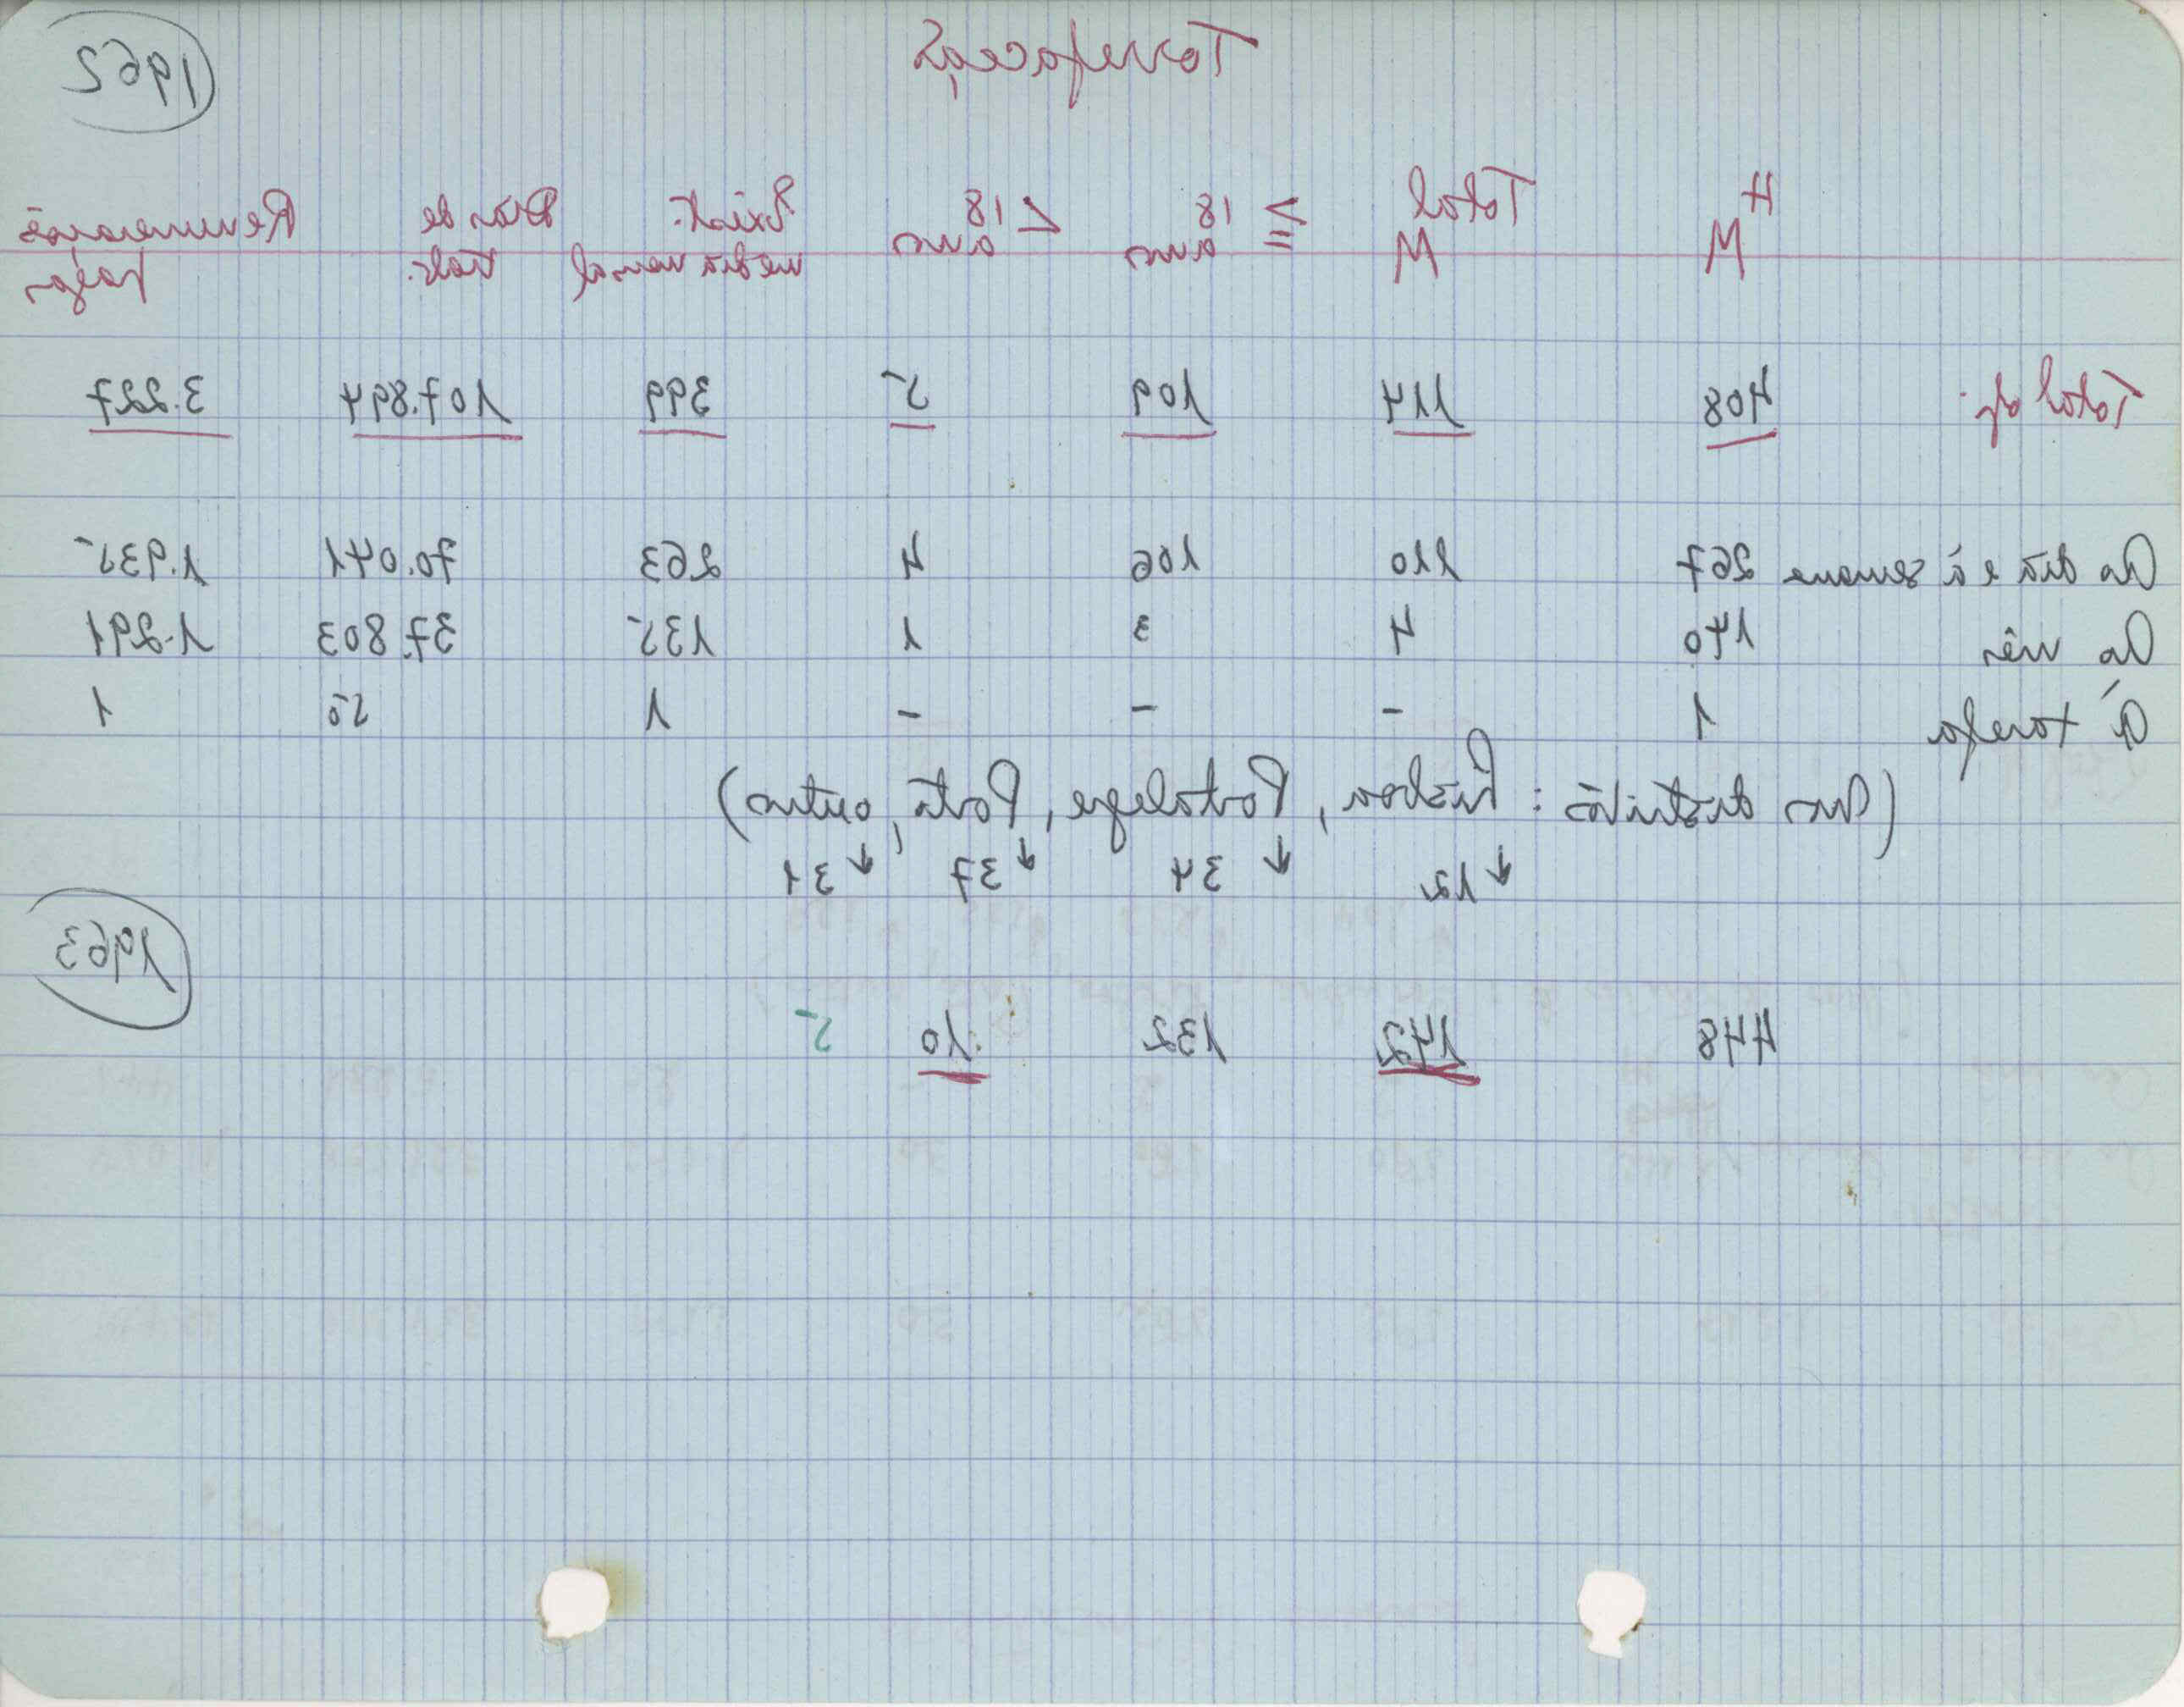 Torrefacção 1962
H M Total M ≥ 18 anos < 18 anos Exist. média mensal Dias de trab. Remunerações pagas
Total 408 114 109 5 399 107.894 3.227
Ao dia e à semana 267 110 106 4 263 70.041 1.935
Ao mês 140 4 3 1 135 37.803 1.291
À tarefa 1 - - - 1 50 1
(Nos distritos: Lisboa, Portalegre, Porto, outros)
↓ 12 ↓ 34 ↓ 37 ↓ 31
1963
448 142 132 10 5